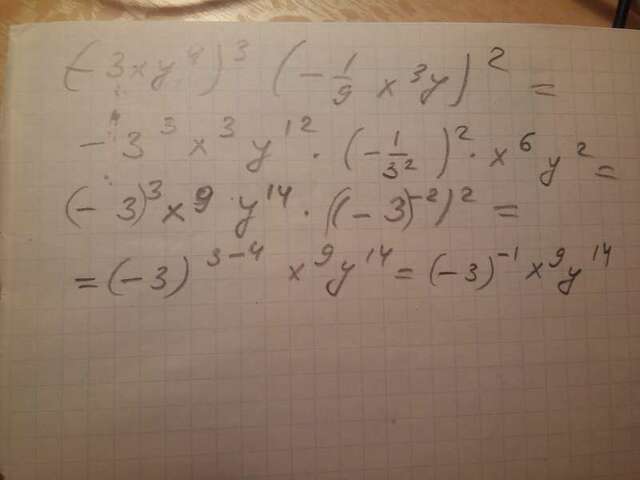 (-3xy⁴)³ (-1/9 x³y)² =
-3³ x³ y¹² · (-1/3²)² · x⁶ y² =
(-3)³ x⁹ y¹⁴ · ((-3)⁻²)² =
= (-3)³⁻⁴ x⁹y¹⁴ = (-3)⁻¹ x⁹y¹⁴